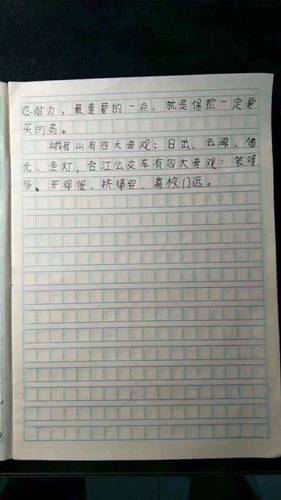 忍耐力，最重要的一点，就是保险一定要
买的高。
峨眉山有四大奇观：日出、云海、佛
光、圣灯，合江公交车有四大奇观：装得
多、开得慢、挤爆起、离校门远。